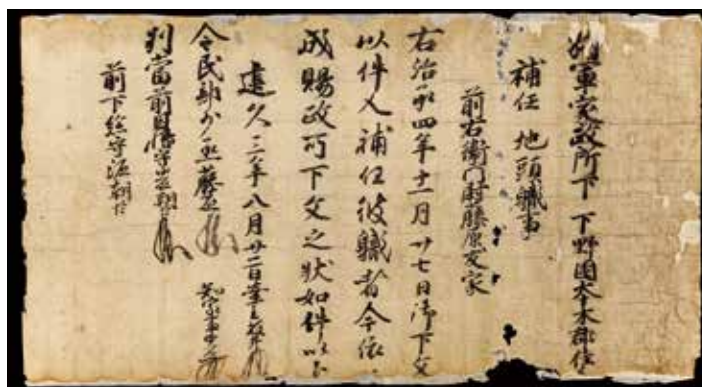 将軍家政所下 下野国本木郡住
補任 地頭職事
前右衛門尉藤原友家
右治承四年十一月廿七日御下文
以件人補任彼職者今依
成賜政所下文之状如件以下
建久三年八月廿二日案主藤井
令民部少丞藤原 知家事中原
別当前因幡守中原朝臣
前下総守源朝臣